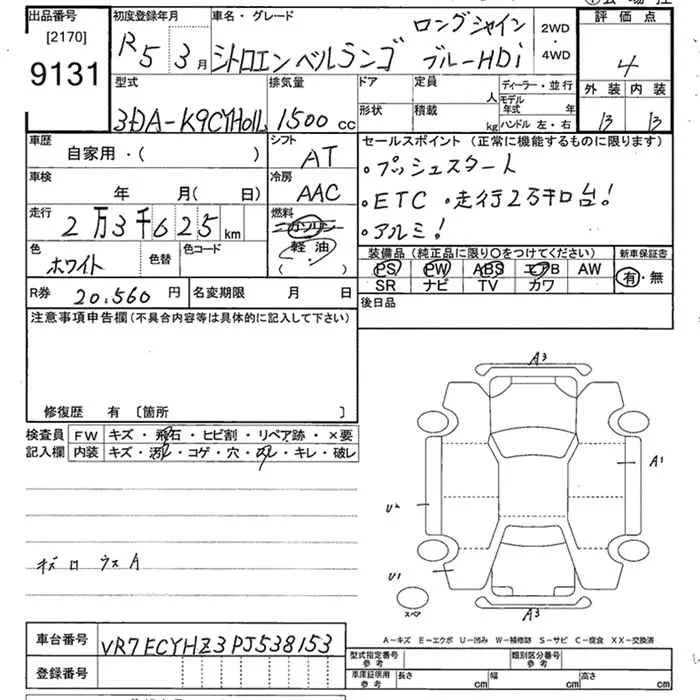 出品番号 初度登録年月 車名・グレード ロングシャイン 2WD・4WD 評価点
[2170] R5 3月 シトロエン ベルランゴ ブルーHDi 4
9131
型式 排気量 ドア 定員 人 ディーラー・並行 外装 内装
3DA-K9CYH01L 1500cc 形状 積載 kg モデル年式 年 ハンドル 左・右 B B
車歴 シフト セールスポイント(正常に機能するものに限ります)
自家用・( ) AT ・プッシュスタート
車検 冷房 ・ETC ・走行2万キロ台!
年 月(日) AAC ・アルミ!
走行 燃料
2万3千625km ガソリン
軽油
( )
色 色替 色コード 装備品(純正品に限り○をつけてください) 新車保証書
ホワイト PS PW ABS エアB AW 有・無
SR ナビ TV カワ
R券 20,560円 名変期限 月 日 後日品
注意事項申告欄(不具合内容等は具体的に記入して下さい)
修復歴 有 〔箇所 〕
検査員 FW キズ・飛石・ヒビ割・リペア跡・×要
記入欄 内装 キズ・汚レ・コゲ・穴・スレ・キレ・破レ
A3
A1
U2
U1
スペア
A3
A-キズ E-エクボ U-凹み W-補修跡 S-サビ C-腐食 XX-交換済
車台番号 VR7ECYHZ3PJ538153
登録番号
型式指定番号 参考 類別区分番号 参考
車庫証明用 参考 長さ cm 幅 cm 高さ cm